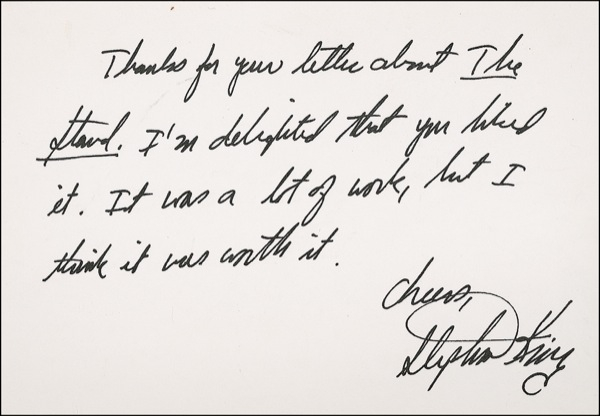 Thanks for your letter about The
Stand. I'm delighted that you liked
it. It was a lot of work, but I
think it was worth it.
Cheers,
Stephen King